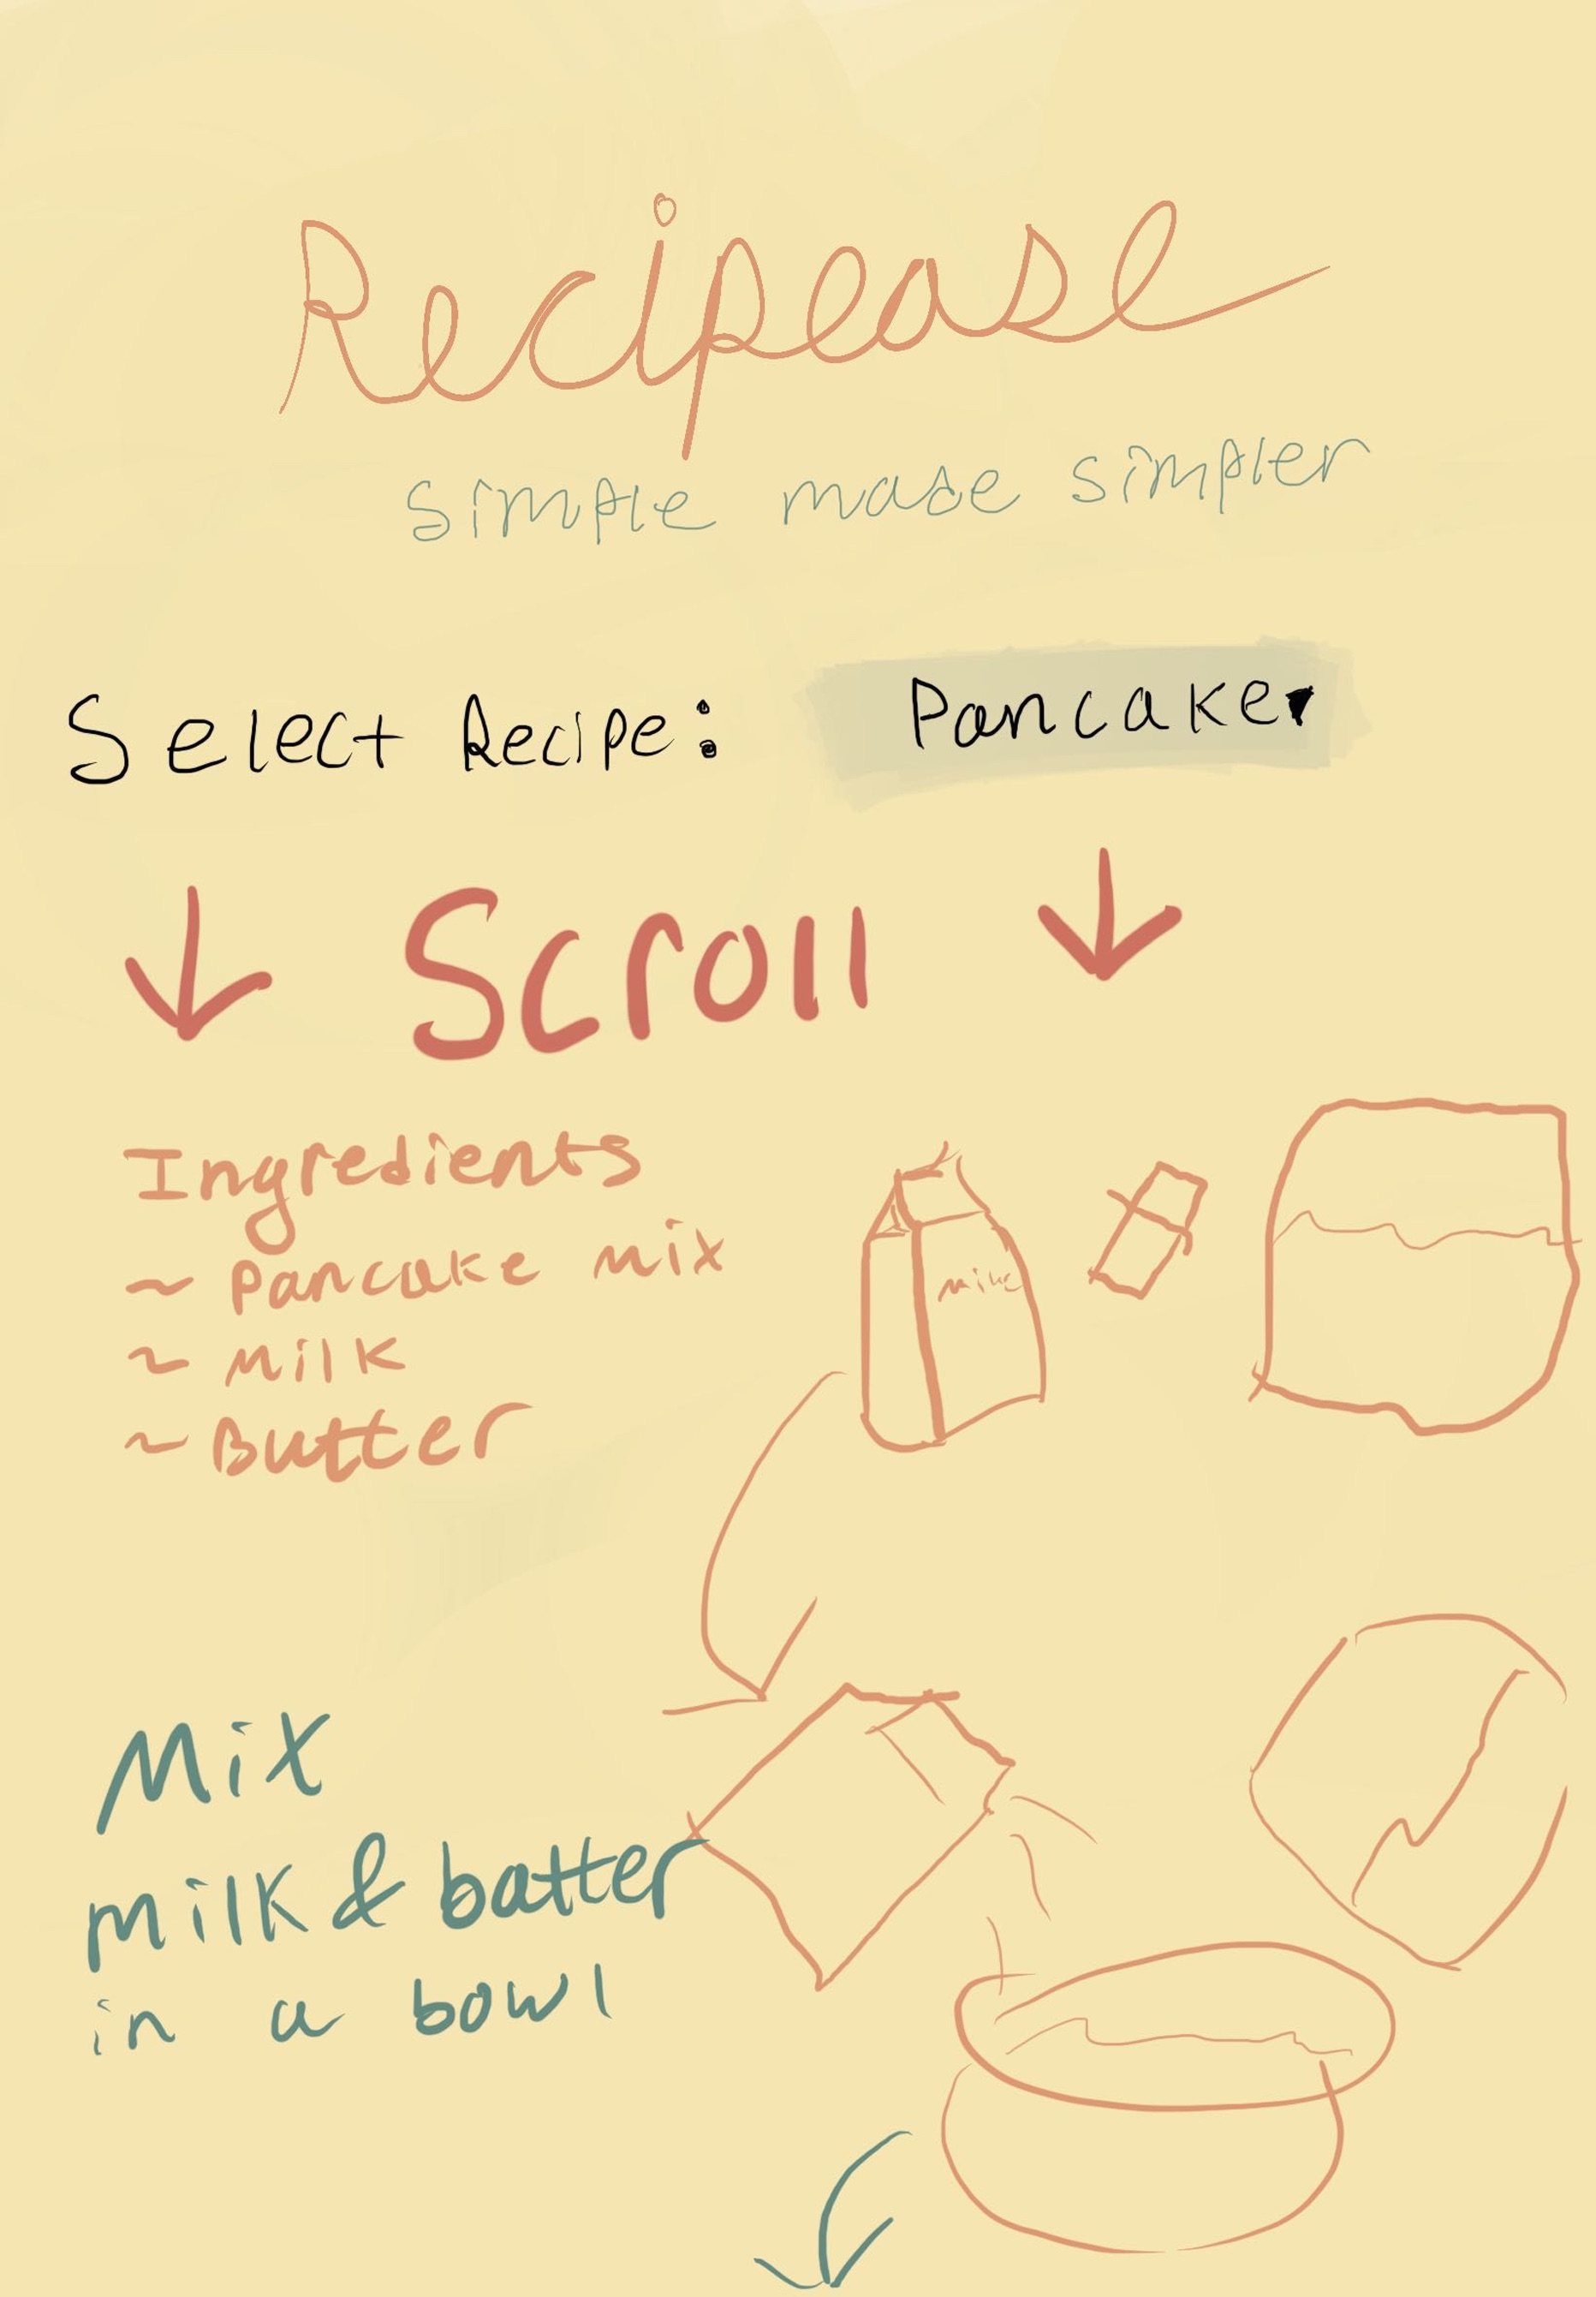 Recipease
simple made simpler
Select Recipe: Pancake
Scroll
Ingredients
~ Pancake mix
~ Milk
~ Butter
milk
Mix
milk & batter
in a bowl